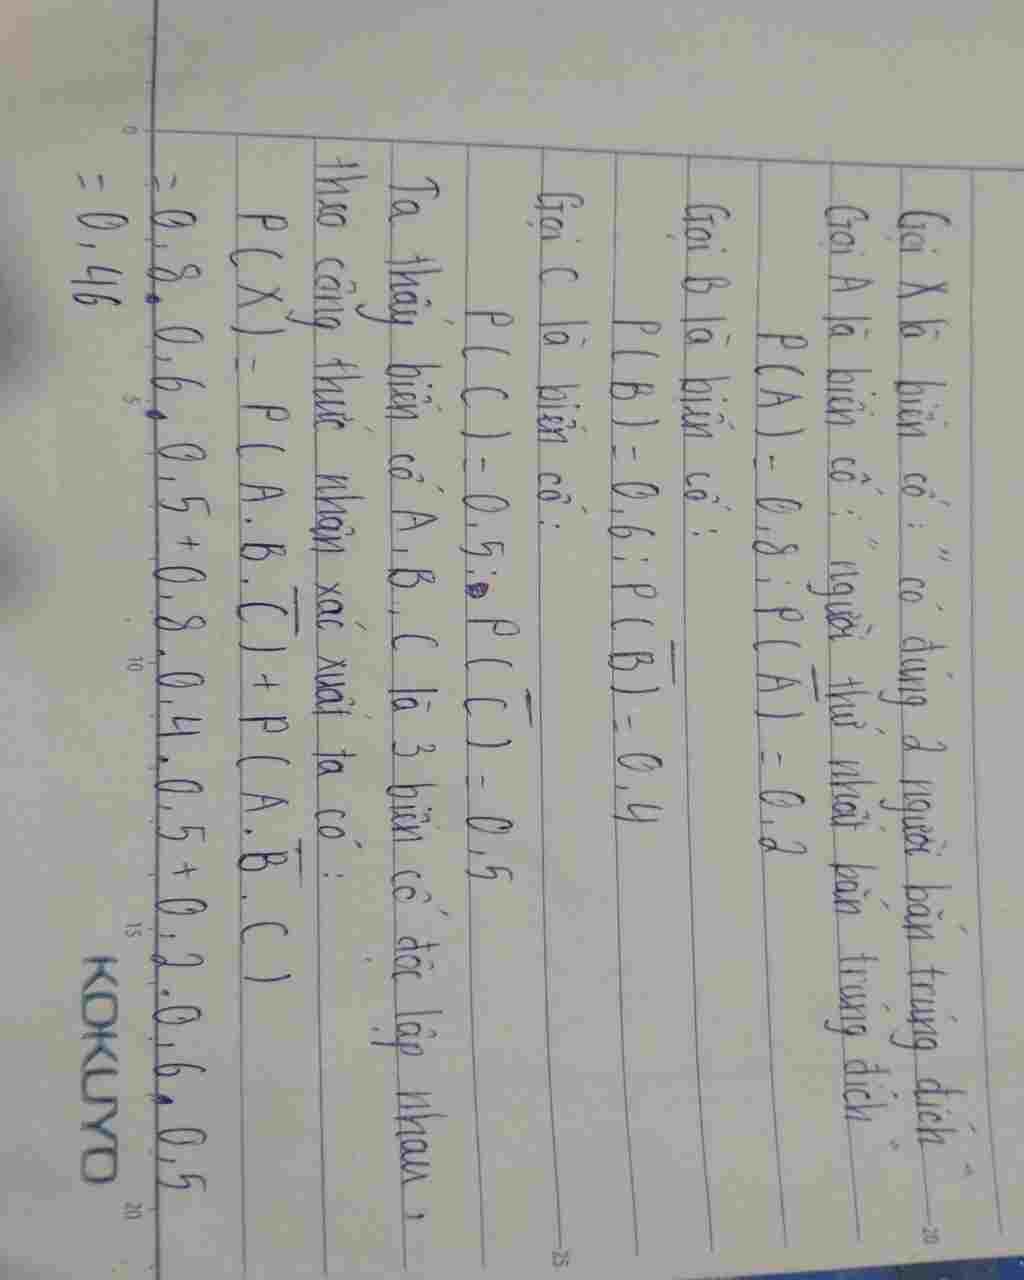 Gọi X là biến cố: " có đúng 2 người bắn trúng đích "
Gọi A là biến cố: " người thứ nhất bắn trúng đích "
P(A) = 0,8; P(A̅) = 0,2
Gọi B là biến cố:
P(B) = 0,6; P(B̅) = 0,4
Gọi C là biến cố:
P(C) = 0,5; P(C̅) = 0,5
Ta thấy biến cố A, B, C là 3 biến cố độc lập nhau,
theo công thức nhận xác xuất ta có:
P(X) = P(A.B.C̅) + P(A.B̅.C)
= 0,8.0,6.0,5 + 0,8.0,4.0,5 + 0,2.0,6.0,5
= 0,46
KOKUYO
0 5 10 15 20
20
25